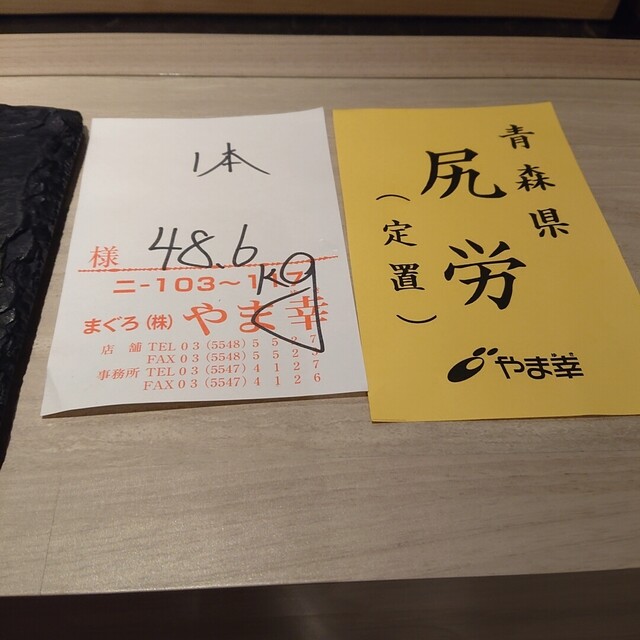 1本
様 48.6
kg
ニ-103〜117
まぐろ(株)やま幸
店舗 TEL 03(5548)5527
FAX 03(5548)5525
事務所 TEL 03(5547)4127
FAX 03(5547)4126
青森県
尻労
(定置)
やま幸